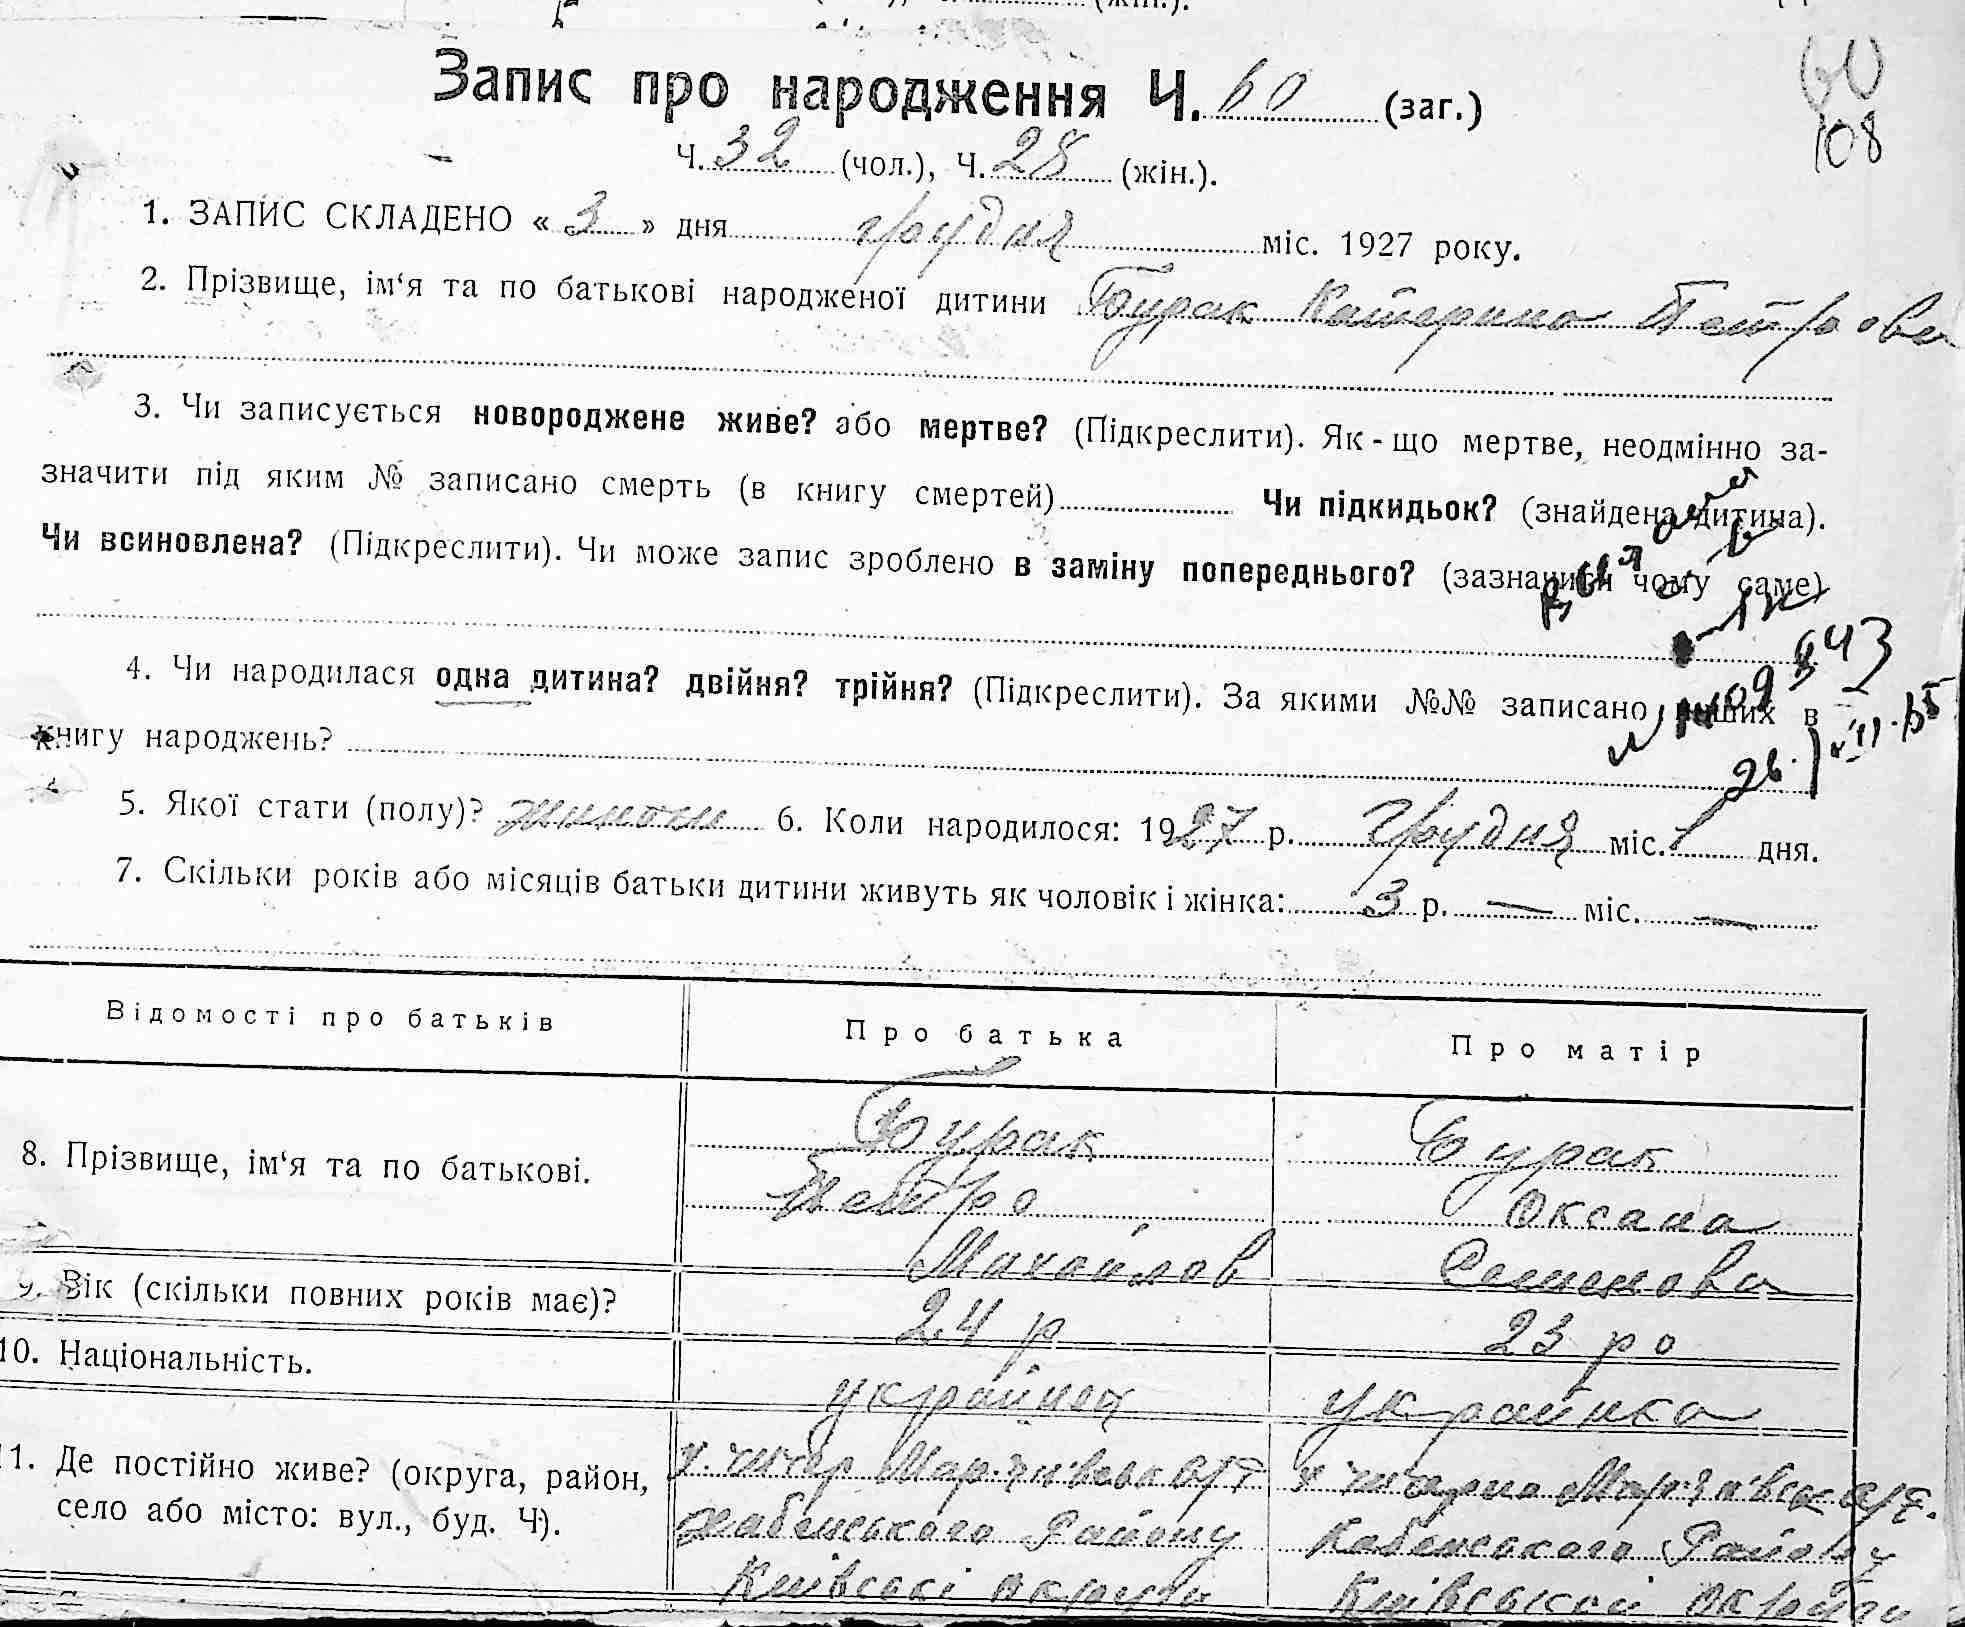 (жін.).
Запис про народження Ч. 60 (заг.)
60
108
Ч. 32 (чол.), Ч. 28 (жін.).
1. ЗАПИС СКЛАДЕНО « 3 » дня грудня міс. 1927 року.
2. Прізвище, ім‘я та по батькові народженої дитини Бурак Катерина Петрова
3. Чи записується новороджене живе? або мертве? (Підкреслити). Як - що мертве, неодмінно за-
значити під яким № записано смерть (в книгу смертей) Чи підкидьок? (знайдена дитина).
Чи всиновлена? (Підкреслити). Чи може запис зроблено в заміну попереднього? (зазначити чому саме)
4. Чи народилася одна дитина? двійня? трійня? (Підкреслити). За якими №№ записано інших в
книгу народжень?
5. Якої стати (полу)? 6. Коли народилося: 1927 р. Грудня міс. 1 дня.
7. Скільки років або місяців батьки дитини живуть як чоловік і жінка: 3 р. — міс. —
Відомості про батьків Про батька Про матір
8. Прізвище, ім‘я та по батькові. Бурак Бурак
Петро Оксана
Михайлов Семенова
9. Вік (скільки повних років має)? 24 р 23 ро
10. Національність. українец українка
11. Де постійно живе? (округа, район,
село або місто: вул., буд. Ч).
Району Району
Київської округи